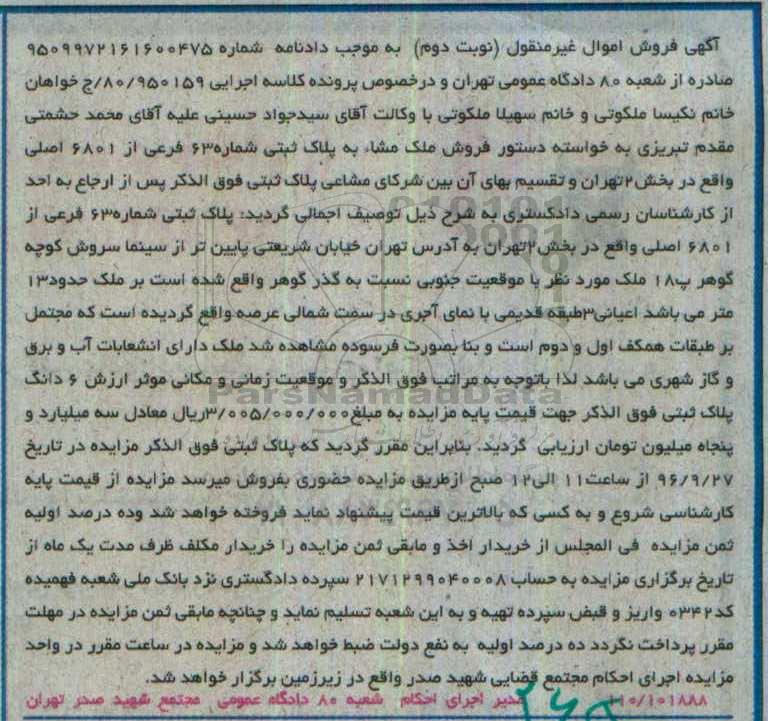 آگهی فروش اموال غیرمنقول (نوبت دوم) به موجب دادنامه شماره ۹۵۰۹۹۷۲۱۶۱۶۰۰۴۷۵
صادره از شعبه ۸۰ دادگاه عمومی تهران و درخصوص پرونده کلاسه اجرایی ۸۰/۹۵۰۱۵۹/ج خواهان
خانم نکیسا ملکوتی و خانم سهیلا ملکوتی با وکالت آقای سیدجواد حسینی علیه آقای محمد حشمتی
مقدم تبریزی به خواسته دستور فروش ملک مشاء به پلاک ثبتی شماره۶۳ فرعی از ۶۸۰۱ اصلی
واقع در بخش۲تهران و تقسیم بهای آن بین شرکای مشاعی پلاک ثبتی فوق الذکر پس از ارجاع به احد
از کارشناسان رسمی دادگستری به شرح ذیل توصیف اجمالی گردید: پلاک ثبتی شماره۶۳ فرعی از
۶۸۰۱ اصلی واقع در بخش۲تهران به آدرس تهران خیابان شریعتی پایین تر از سینما سروش کوچه
گوهر پ۱۸ ملک مورد نظر با موقعیت جنوبی نسبت به گذر گوهر واقع شده است بر ملک حدود۱۳
متر می باشد اعیانی۳طبقه قدیمی با نمای آجری در سمت شمالی عرصه واقع گردیده است که مجتمل
بر طبقات همکف اول و دوم است و بنا بصورت فرسوده مشاهده شد ملک دارای انشعابات آب و برق
و گاز شهری می باشد لذا باتوجه به مراتب فوق الذکر و موقعیت زمانی و مکانی موثر ارزش ۶ دانگ
ParsNamadData
پلاک ثبتی فوق الذکر جهت قیمت پایه مزایده به مبلغ۳/۰۰۵/۰۰۰/۰۰۰ریال معادل سه میلیارد و
پنجاه میلیون تومان ارزیابی گردید. بنابراین مقرر گردید که پلاک ثبتی فوق الذکر مزایده در تاریخ
۹۶/۹/۲۷ از ساعت۱۱ الی۱۲ صبح ازطریق مزایده حضوری بفروش میرسد مزایده از قیمت پایه
کارشناسی شروع و به کسی که بالاترین قیمت پیشنهاد نماید فروخته خواهد شد وده درصد اولیه
ثمن مزایده فی المجلس از خریدار اخذ و مابقی ثمن مزایده را خریدار مکلف ظرف مدت یک ماه از
تاریخ برگزاری مزایده به حساب ۲۱۷۱۲۹۹۰۴۰۰۰۸ سپرده دادگستری نزد بانک ملی شعبه فهمیده
کد۰۳۴۲ واریز و قبض سپرده تهیه و به این شعبه تسلیم نماید و چنانچه مابقی ثمن مزایده در مهلت
مقرر پرداخت نگردد ده درصد اولیه به نفع دولت ضبط خواهد شد و مزایده در ساعت مقرر در واحد
مزایده اجرای احکام مجتمع قضایی شهید صدر واقع در زیرزمین برگزار خواهد شد.
۱۱۰/۱۰۱۸۸۸ مدیر اجرای احکام شعبه ۸۰ دادگاه عمومی مجتمع شهید صدر تهران